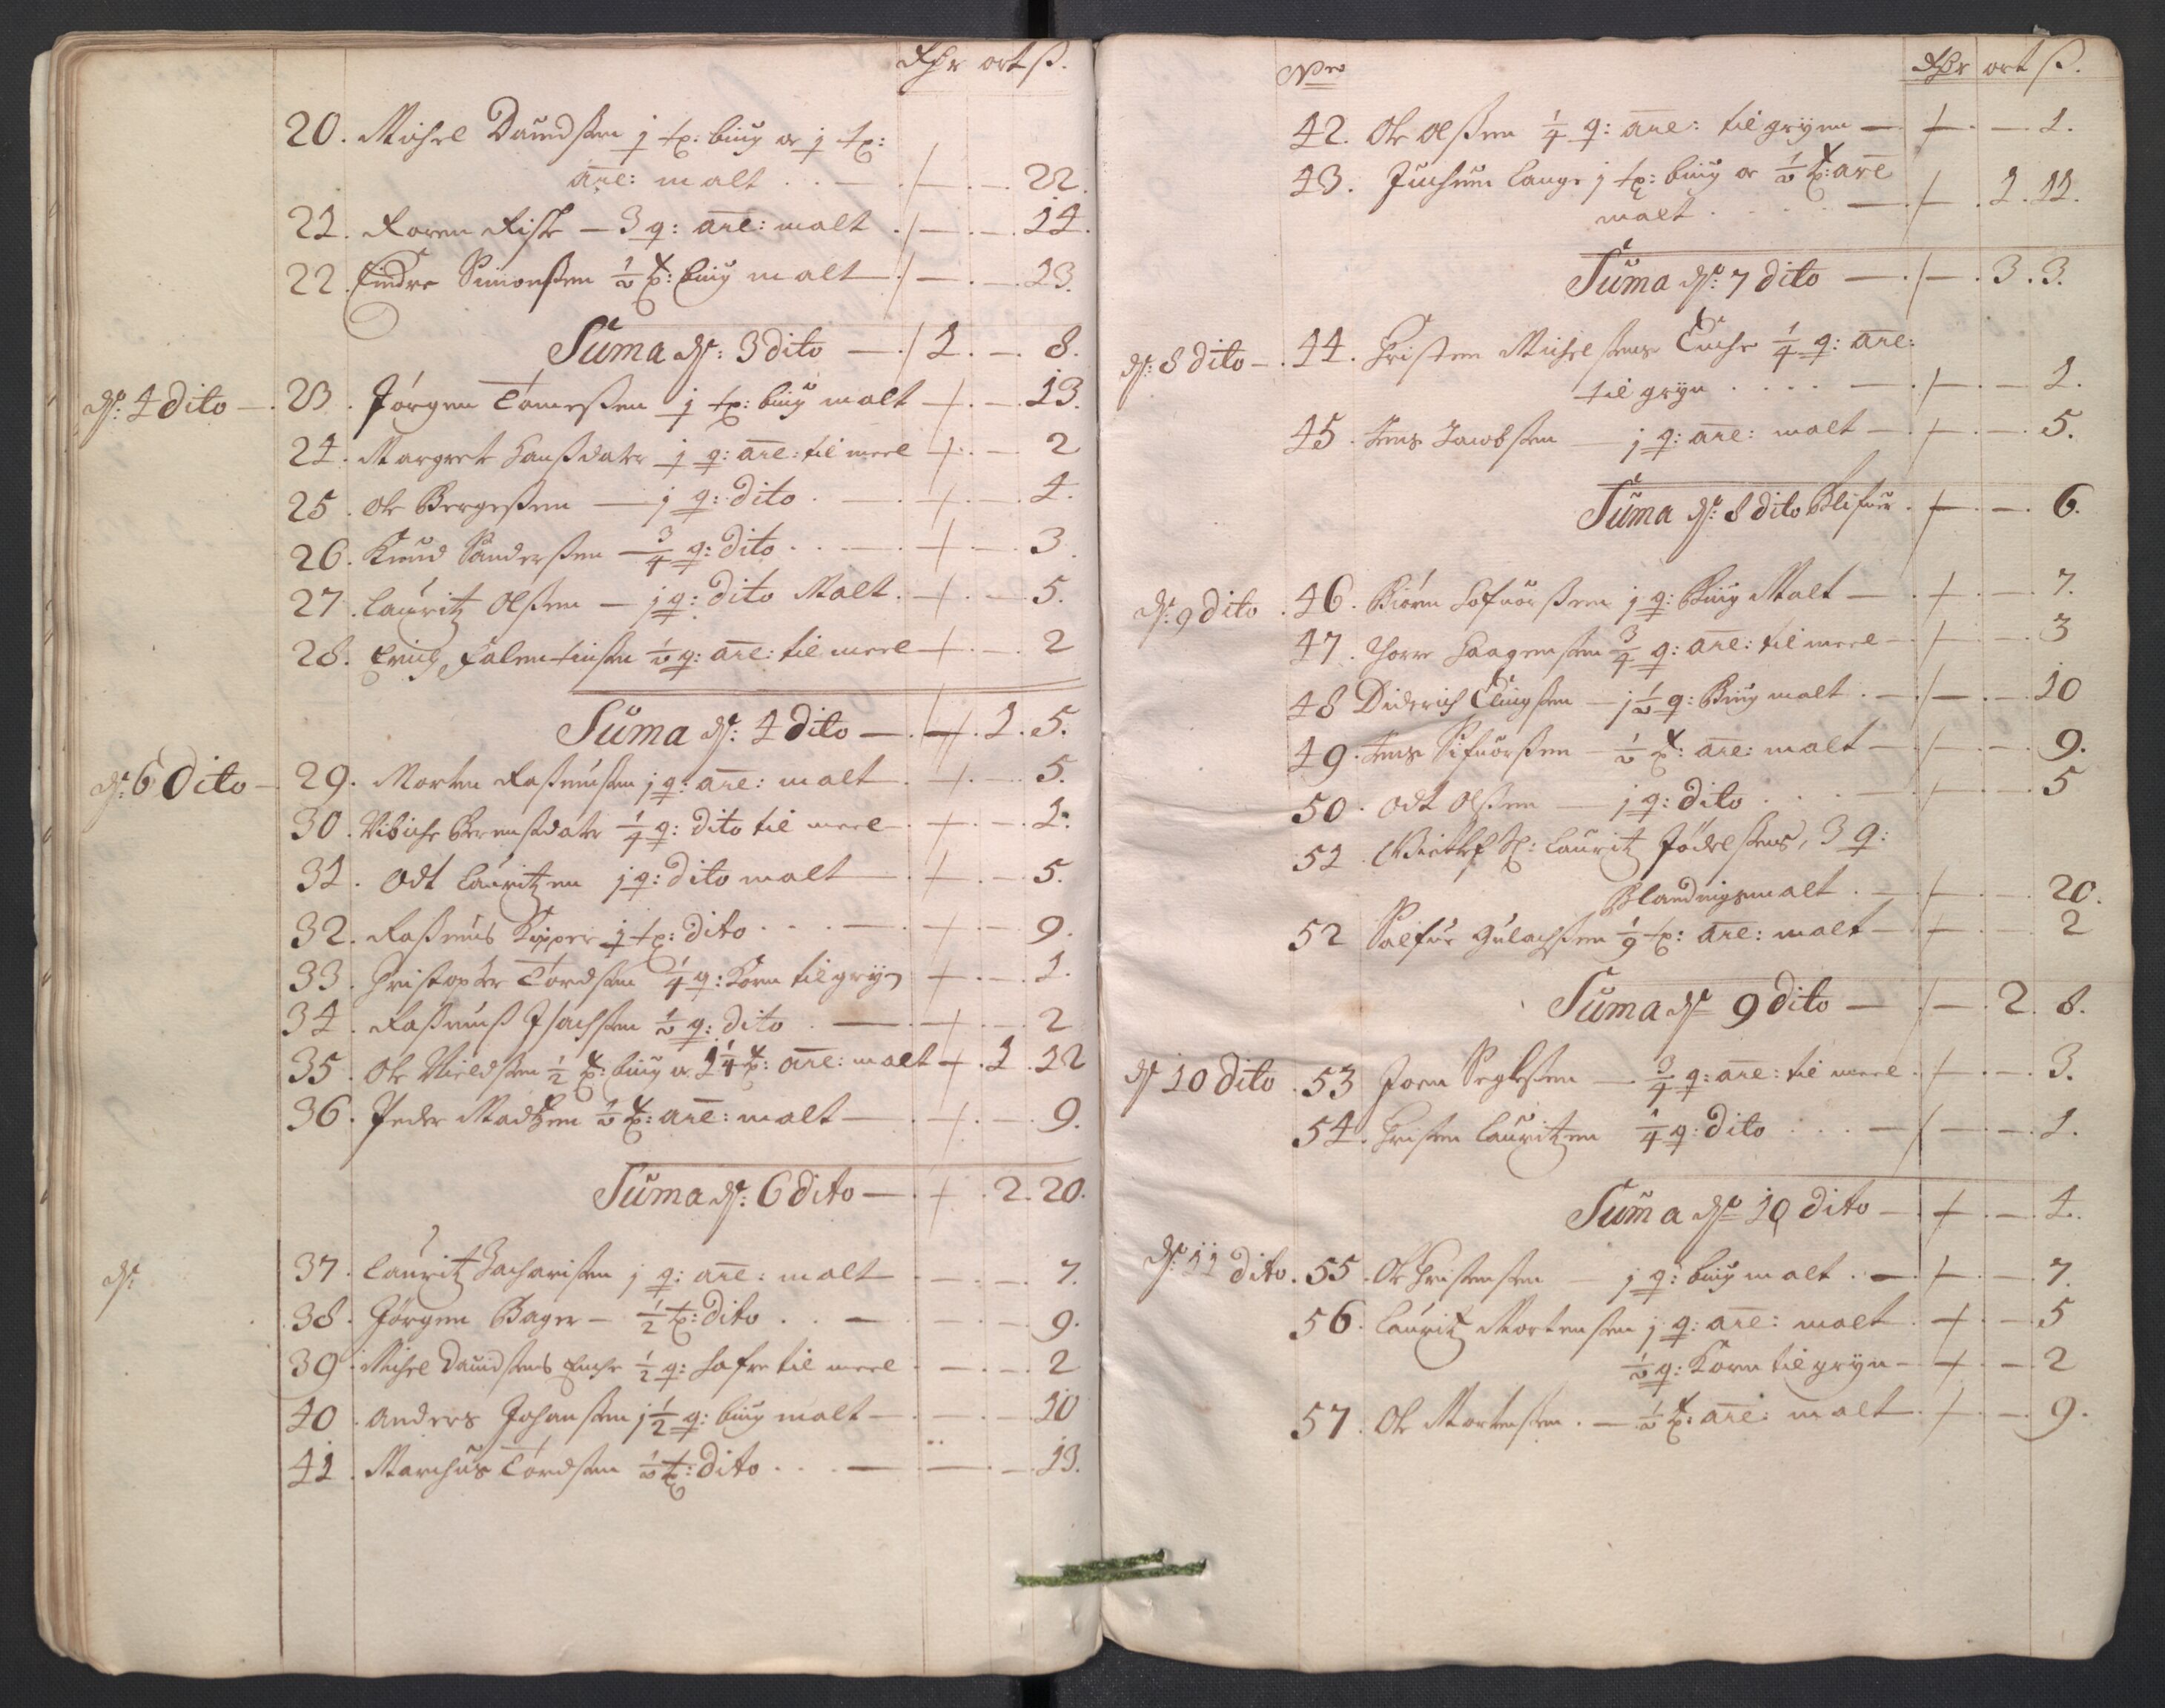 Rdr ort ß.
20. Michel Dauidsen j tø: biug oc j tø:
aŭe: malt . . — . /— . —. 22.
21. Karen Fisk — 3 q: aŭe: malt ./— . — 14.
22. Eindre Simonsen ½ tø: biug malt — / — . — 23.
Suma ds: 3 dito — ./ 1. — . 8.
ds: 4 dito — . 23. Jörgen Tomesen j tø: biug malt —/— . — 13.
24. Margrete Hansdater j q: aŭe: til meel —/— . — 2
25. Ole Bergesen — j q: dito . — . —/— . — 4.
26. Knud Sandersen — ¾ q: dito . . — . —/— . — 3.
27. Lauritz Olsen — j q: dito Malt . —/— . — 5.
28. Erich Falentinsen ½ q: aŭe: til meel —/— . — 2
Suma ds: 4 dito — . —/— . 1. 5.
ds: 6 dito — 29. Morten Rasmusen j q: aŭe: malt . —/— . — 5.
30. Vibiche Berensdater ¼ q: dito til meel . —/— . — 1.
31. Odt Lauritzen j q: dito malt — . —/— . — 5.
32. Rasmus Kipper j tø: dito . . . — . —/— . — 9.
33. Christopher Tordsen ¼ q: Korn til gryn —/— . — 1.
34. Rasmus Isachsen ½ q: dito . — . —/— . — 2
35. Ole Nieldsen ½ tø: biug oc 1¼ tø: aŭe: malt —/— . 1 . 12
36. Peder Madtzen ½ tø: aŭe: malt — . —/— . — 9.
Suma ds: 6 dito — . —/— . 2. 20.
ds: 37. Lauritz Zacharisen j q: aŭe: malt — . — . — 7.
38. Jörgen Bager — ½ tø: dito . . — . — . — 9.
39. Michel Dauidsens Enche ½ q: hafre til meel . — . — 2
40. Anders Johansen j½ q: biug malt — . — . — 10
41. Marchus Tordsen ½ tø: dito . . . — . — . — 13.
Nro Rdr ort ß.
42. Ole Olsen ¼ q: aŭe: til gryn — . —/— . — 1.
43. Jochum Lange j tø: biug oc ½ tø: aŭe
malt . . . . — ./— . 1. 11.
Suma ds: 7 dito — . /— . 3. 3.
ds: 8 dito — . 44. Christen Michelsens Enche ¼ q: aŭe:
til gryn . . . . — . —/— . — 1.
45. Jens Jacobsen — j q: aŭe: malt — . —/— . — 5.
Suma ds: 8 dito Blifuer . —/— . — 6.
ds: 9 dito . 46. Biörn Hofuorsen j q: Biug Malt — . —/— . — 7.
47. Torre Haagensen ¾ q: aŭe: til meel — . /— . — 3
48 Diderich Elingsen — j½ q: Biug malt . — ./— . — 10
49. Jens Sifuorsen — ½ tø: aŭe: malt — . —/— . — 9.
50. Odt Olsen — j q: dito . . . — . —/— . — 5
51. Lauritz Jödelsens, 3 q:
Blandingsmalt . — . —/— . — 20.
52 Salfue Gulachsen 1/9 tø: aŭe: malt — . —/— . 2
Suma ds 9 dito — . /— . 2. 8.
ds 10 dito . 53 Joen Segelsen — ¾ q: aŭe: til meel . /— . — 3.
54. Christen Lauritzen ¼ q: dito . . . — / — . — 1.
Suma ds 10 dito — . —/— . — 4.
ds: 11 dito . 55. Ole Christensen — j q: biug malt . — . /— . — 7.
56. Lauritz Mortensen j q: aŭe: malt . —/— . — 5
½ q: Korn til gryn — . —/— . — 2
57. Ole Mortensen . — ½ tø: aŭe: malt . —/— . — 9.